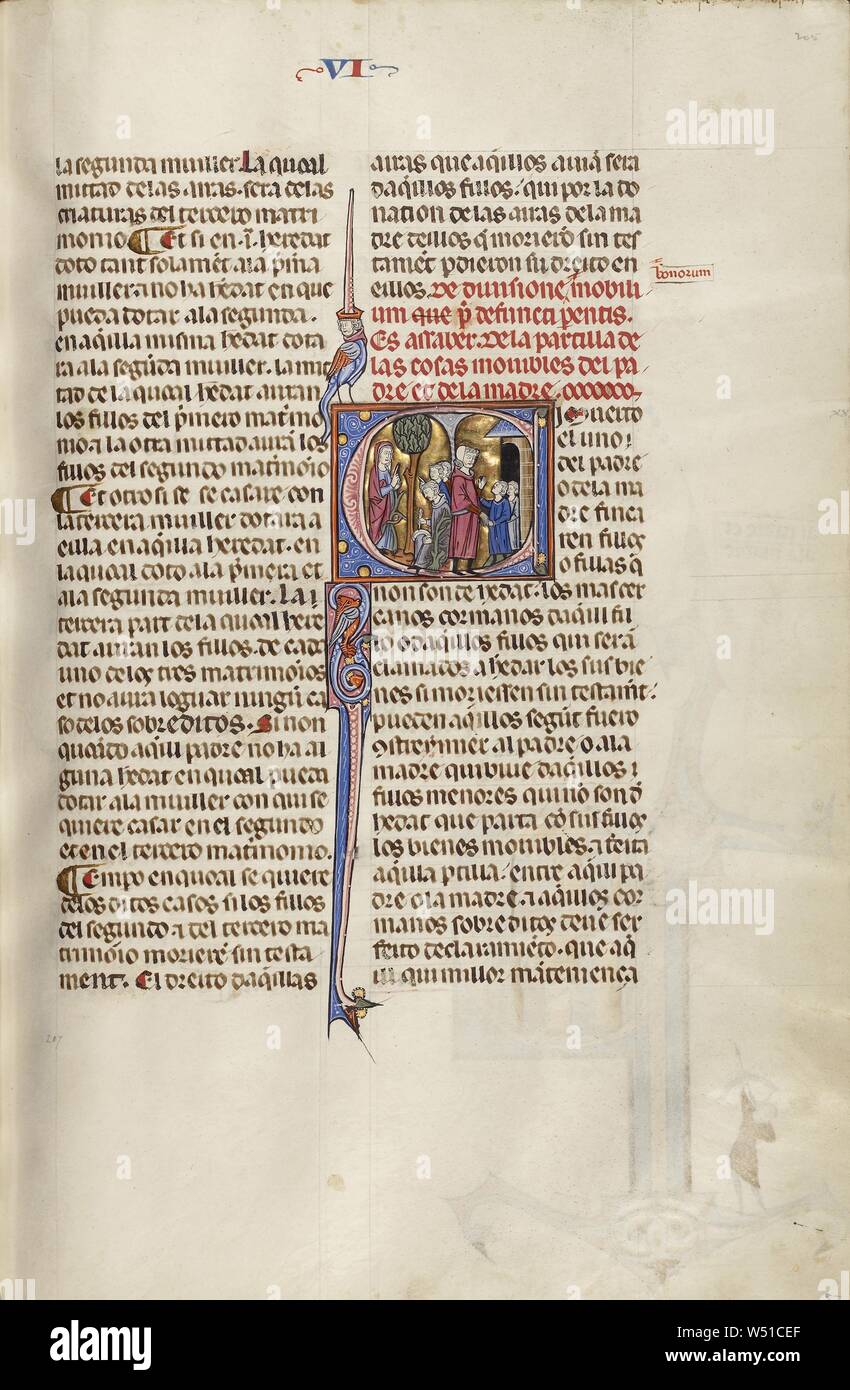 VI
205
la segunda muiller. La qual
mitad delas arras. sera delas
criaturas del tercero matri
monio. Et si en .i. heredat
doto tant solamēt ala p̄mā
muiller a no ha hedat en que
pueda dotar ala segunda.
en aq̄lla misma hedat dota
ra ala segūda muiller. la mi
tad de la qual hedat auran
los fillos del p̄mero mat̄mo
los
fillos del segundo matimōio
Et otro si se se casare con
la tercera muiller dotara a
eilla en aq̄lla heredat. en
la qual doto ala p̄mera et
ala segunda muiller. La
tercera part de la qual here
dat auran los fillos. de cada
uno delos tres matrimōios
et no aura loguar ningū ca
so delos sobreditos. Si non
aqui padre no ha al
guna hedat en qual pueda
dotar ala muiller con qui se
quiere casar en el segundo
et en el tercero mat̄imonio.
Tempo en qual se quiere
delos ditos casos si los fillos
del segundo a del tercero ma
trimōio morierē sin testa
ment. El dreito daq̄llas
arras que aq̄llos auiā sera
daq̄llos fillos. qui por la do
nation de las arras de la ma
dre deillos q̄ morierō sin tes
tamēt pdieron su dreito en
eillos. De diuisione mobili
bonorum
um que p̄ defuncti pentis.
Es assaber. De la partilla de
las cosas mouibles del pa
dre et de la madre.
Muerto
el uno
del padre
o de la ma
dre finca
ren fillos
o fillas q̄
non son de hedat. los mas cer
canos cormanos daq̄l fi
llo o daquillos fillos qui serā
clamados a hedar los sus bie
nes si moriessen sin testamt.
pueden aq̄llos segūt fuero
9streynner al padre o ala
madre qui biue daq̄llos
fillos menores qui nō son d̄
hedat que parta cō sus fillos
los bienes mouibles. a feita
aq̄lla ptilla. entre aq̄l pa
dre o la madre a aq̄llos cor
manos sobreditos deue ser
feito declaramiēto. que aq̄
ill qui millor mātenienca
207
alamy
Image ID: W51CEF
www.alamy.com